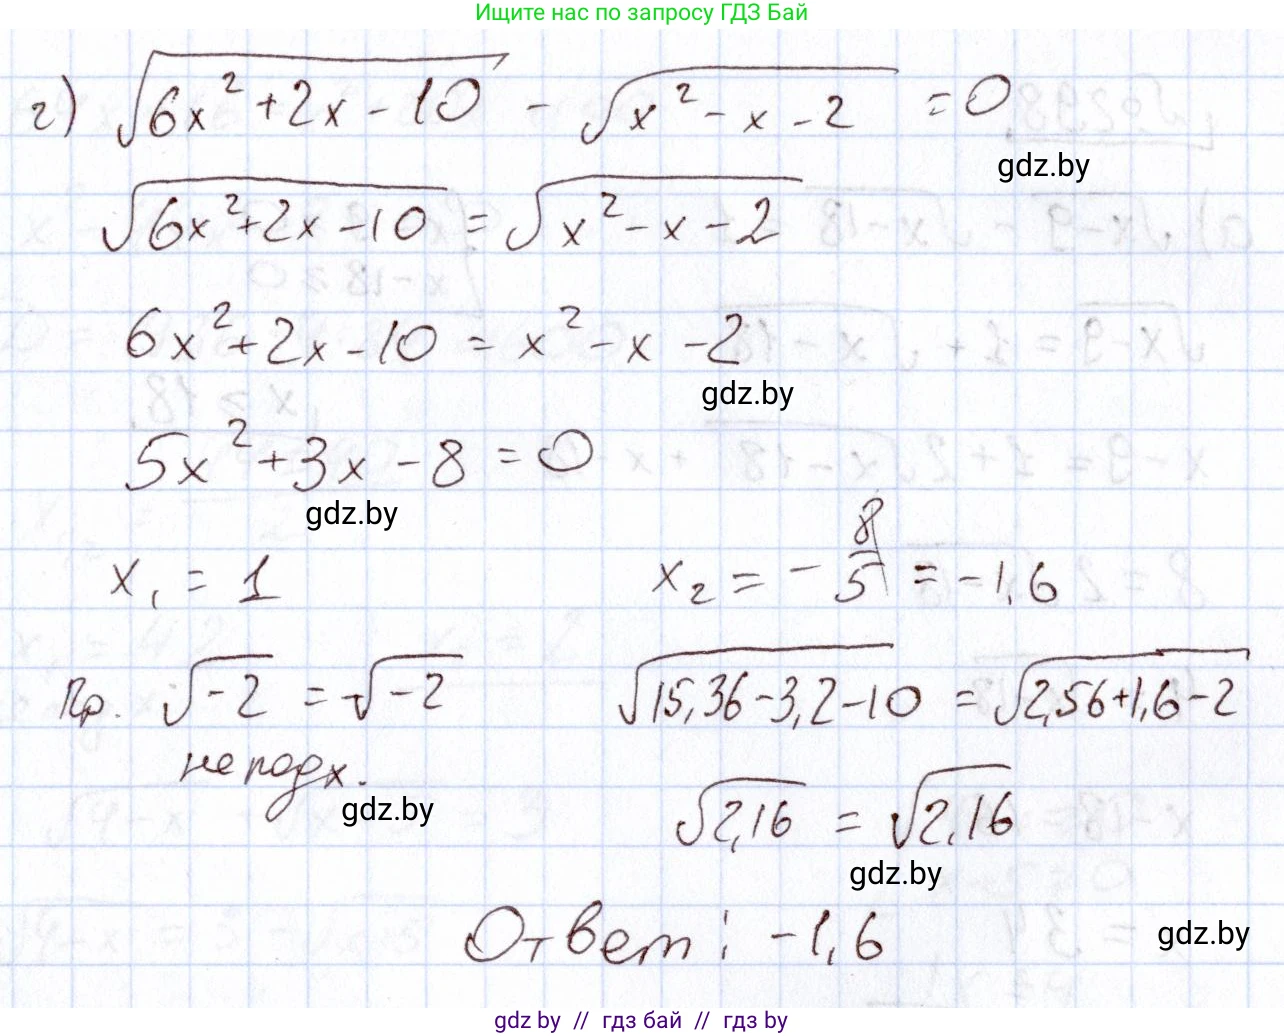 Ищите нас по запросу ГДЗ Бай
г) √(6x² + 2x - 10) - √(x² - x - 2) = 0
gdz.by
√(6x² + 2x - 10) = √(x² - x - 2)
6x² + 2x - 10 = x² - x - 2
gdz.by
5x² + 3x - 8 = 0
gdz.by
x₁ = 1 x₂ = - 8/5 = -1,6
Пр. √-2 = √-2 √(15,36 - 3,2 - 10) = √(2,56 + 1,6 - 2)
не подх.
gdz.by
√2,16 = √2,16
gdz.by
Ответ: -1,6
gdz.by
gdz by // гдз бай // гдз by